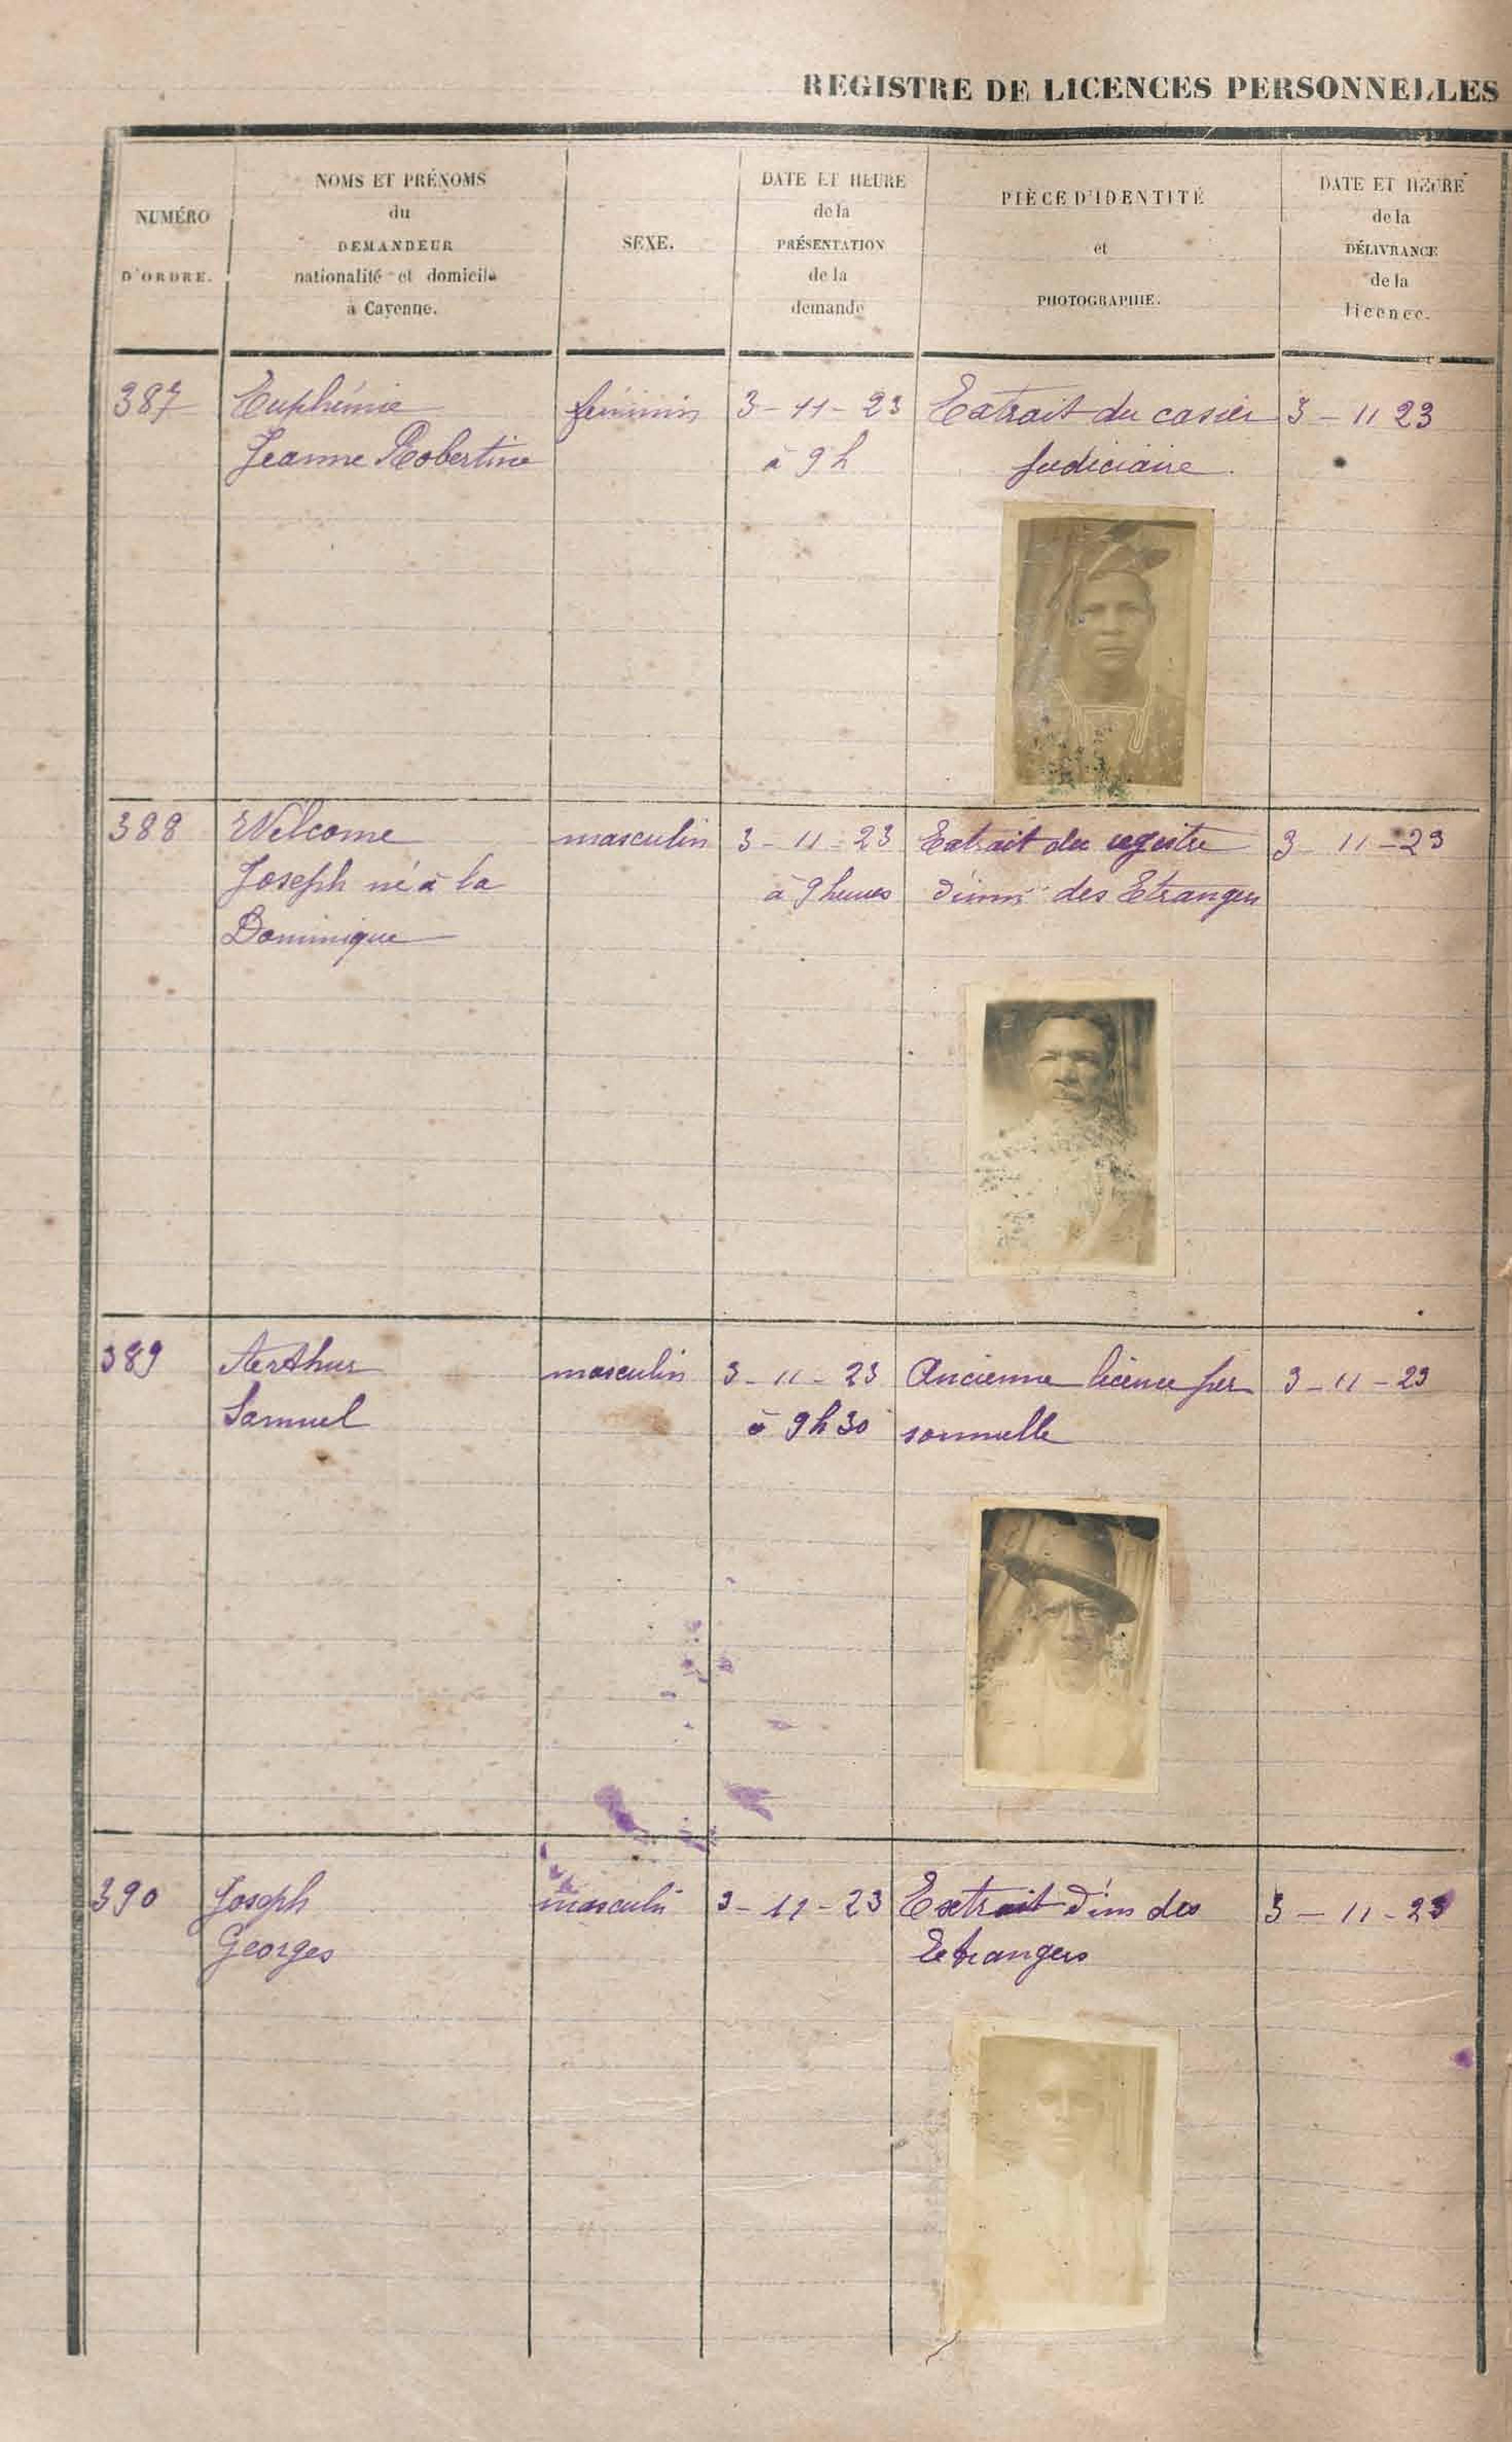 REGISTRE DE LICENCES PERSONNELLES
NUMÉRO
D'ORDRE.
NOMS ET PRÉNOMS
du
DEMANDEUR
nationalité et domicile
à Cayenne.
SEXE.
DATE ET HEURE
de la
PRÉSENTATION
de la
demande
PIÈCE D'IDENTITÉ
et
PHOTOGRAPHIE.
DATE ET HEURE
de la
DÉLIVRANCE
de la
licence.
387 Euphémie féminin 3-11-23 Extrait du casier 3-11 23
Jeanne Robertine à 9h judiciaire.
388 Welcome masculin 3-11-23 Extrait du registre 3 11-23
Joseph né à la à 9 heures d'imm des Etrangers
Dominique
389 Arthur masculin 3-11-23 Ancienne licence per 3-11-23
Samuel à 9h30 sonnelle
390 Joseph masculin 3-11-23 Extrait d'im des 3-11-23
Georges Etrangers